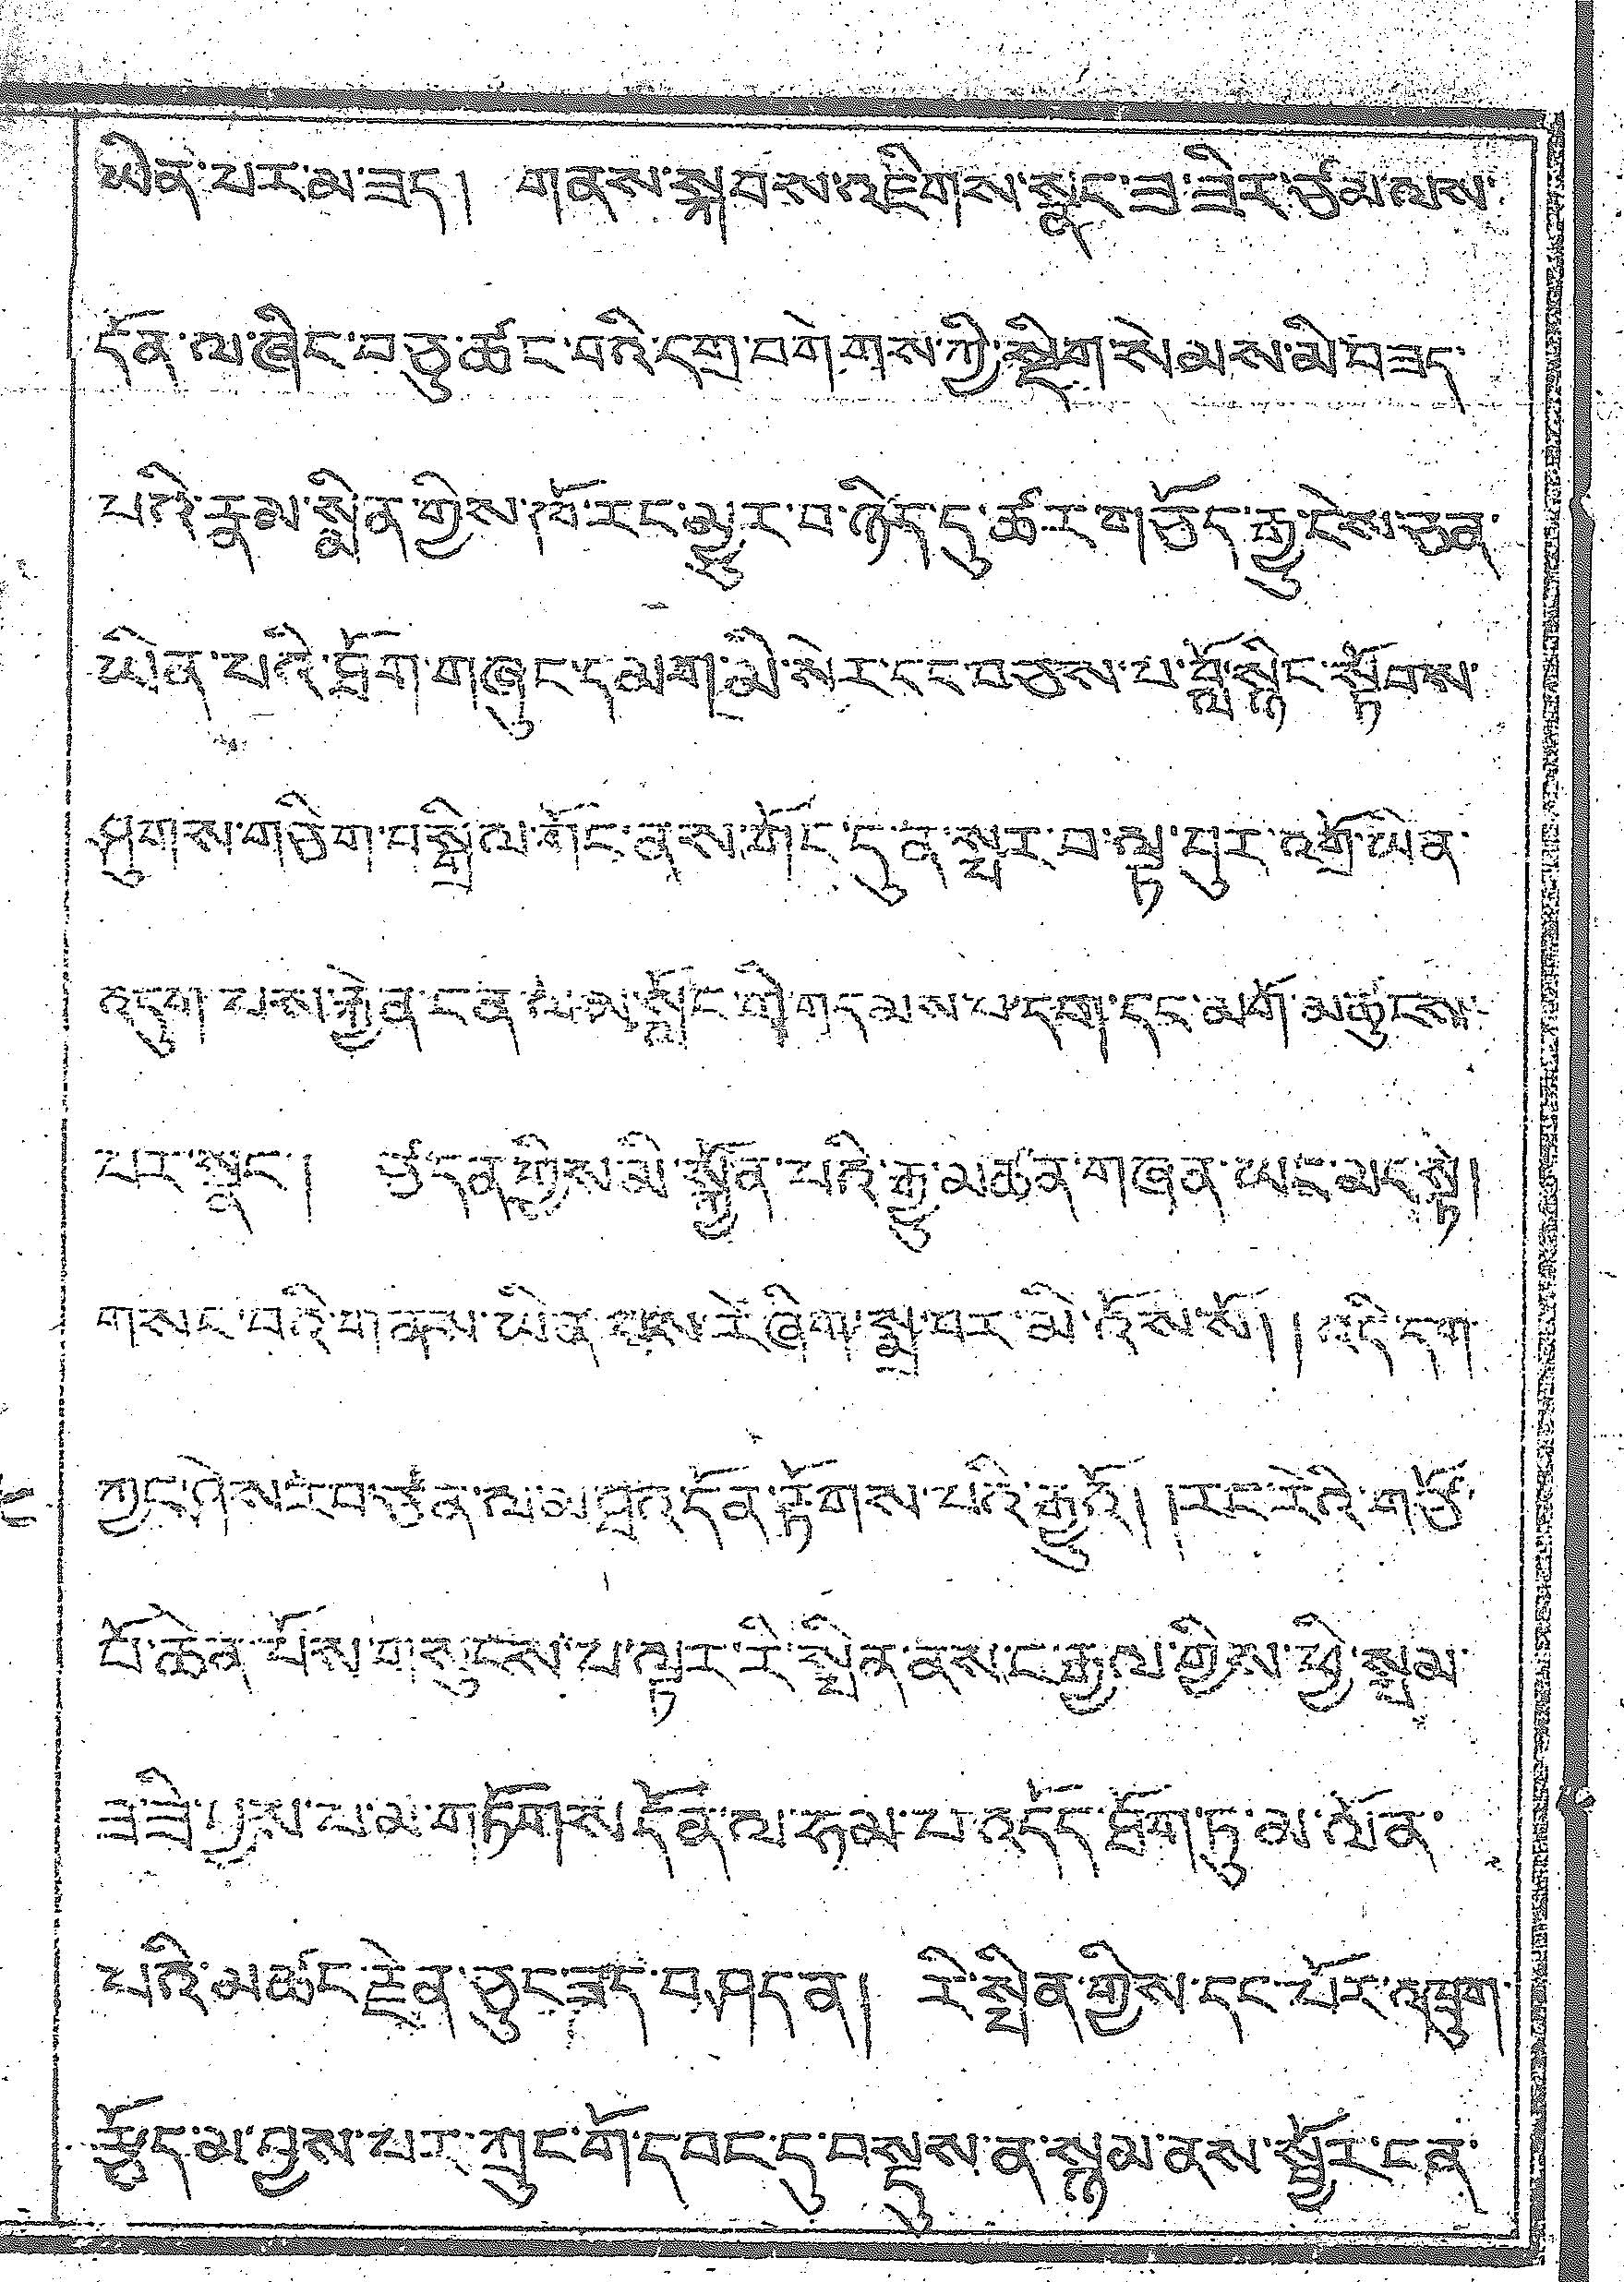 ཡིན་པར་མ་ཟད། གནས་སྐབས་འཇིགས་སྣང་ཟ་ཟིར་ཙམ་ལས་
དོན་ལ་ཞིང་བཅུ་ཚང་བའི་དགྲ་བགེགས་ཀྱི་སྡིག་སེམས་མི་བཟད་
པའི་རྣམ་སྨིན་གྱིས་ཁོ་རང་མྱུར་བ་ཉིད་དུ་ཚར་གཅོད་རྒྱུ་ངེས་ཅན་
ཡིན་པའི་ཐོག་གཞུང་དམག་མི་སེར་དང་བཅས་པ་བློ་སྙིང་སྟོབས་
ཕྱོགས་གཅིག་བསྒྲིལ་གོང་ནས་གོང་དུ་ན་སྦྱར་བ་ལྟ་བུར་འགྲོ་ཡིན་
འདུག་པས་རྐྱེན་ངན་ལ་མ་སྐྱོང་གི་གདམས་པ་དག་དང་མགོ་མཚུངས་
པར་སྣང་། ཙོ་དན་གྱིས་མི་སྐྱོན་པའི་རྒྱུ་མཚན་གཞན་ཡང་མང་སྟེ།
གསང་བའི་གནས་ཡིན་པས་རེ་ཞིག་སྨྲ་བར་མི་འོས་སོ།། འདི་དག་
ཀྱང་ཤེས་རབ་ཅན་ལ་མ་བྲོ་དོན་རྟོགས་པའི་རྒྱུའོ།། རང་རེའི་གཙོ་
བོ་ཆེན་པོས་བསུངས་པ་ལྟར་རི་སྤྲིན་ནས་ང་རྒྱལ་གྱིས་ཕྱི་སྒྲམ་
ཟ་ཟི་བྱས་པ་མ་གཏོགས་དོན་ལ་ཧམ་པ་འདོད་ཐོག་ཏུ་མ་ལོན་
པའི་མཚང་རྗེན་ཅུང་ཟད་བཤད་ན། རི་སྤྲིན་གྱིས་དང་པོར་འབྲུག་
སྤྱོད་མ་བྱས་པར་ཀྲུང་གོ་དབང་དུ་བསྡུས་ན་སྙམ་ནས་སྦྱོར་ངན་